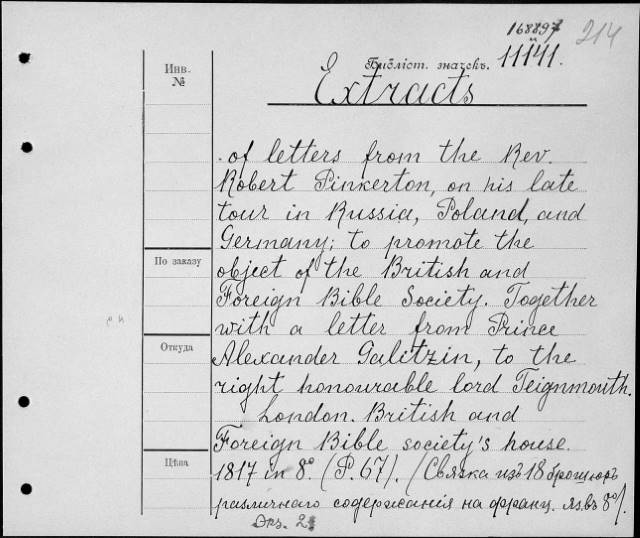 168897 214
Библіот. значекъ. 11141.
Инв.
№
Extracts
of letters from the Rev.
Robert Pinkerton, on his late
tour in Russia, Poland, and
Germany; to promote the
По заказу
object of the British and
Foreign Bible Society. Together
with a letter from Prince
Откуда
Alexander Galitzin, to the
right honourable lord Teignmouth.
London. British and
Foreign Bible society's house.
Цѣна
1817 in 8°. (P. 67). (Связка изъ 18 брошюръ
различнаго содержанія на франц. яз. въ 8°).
Экз. 2